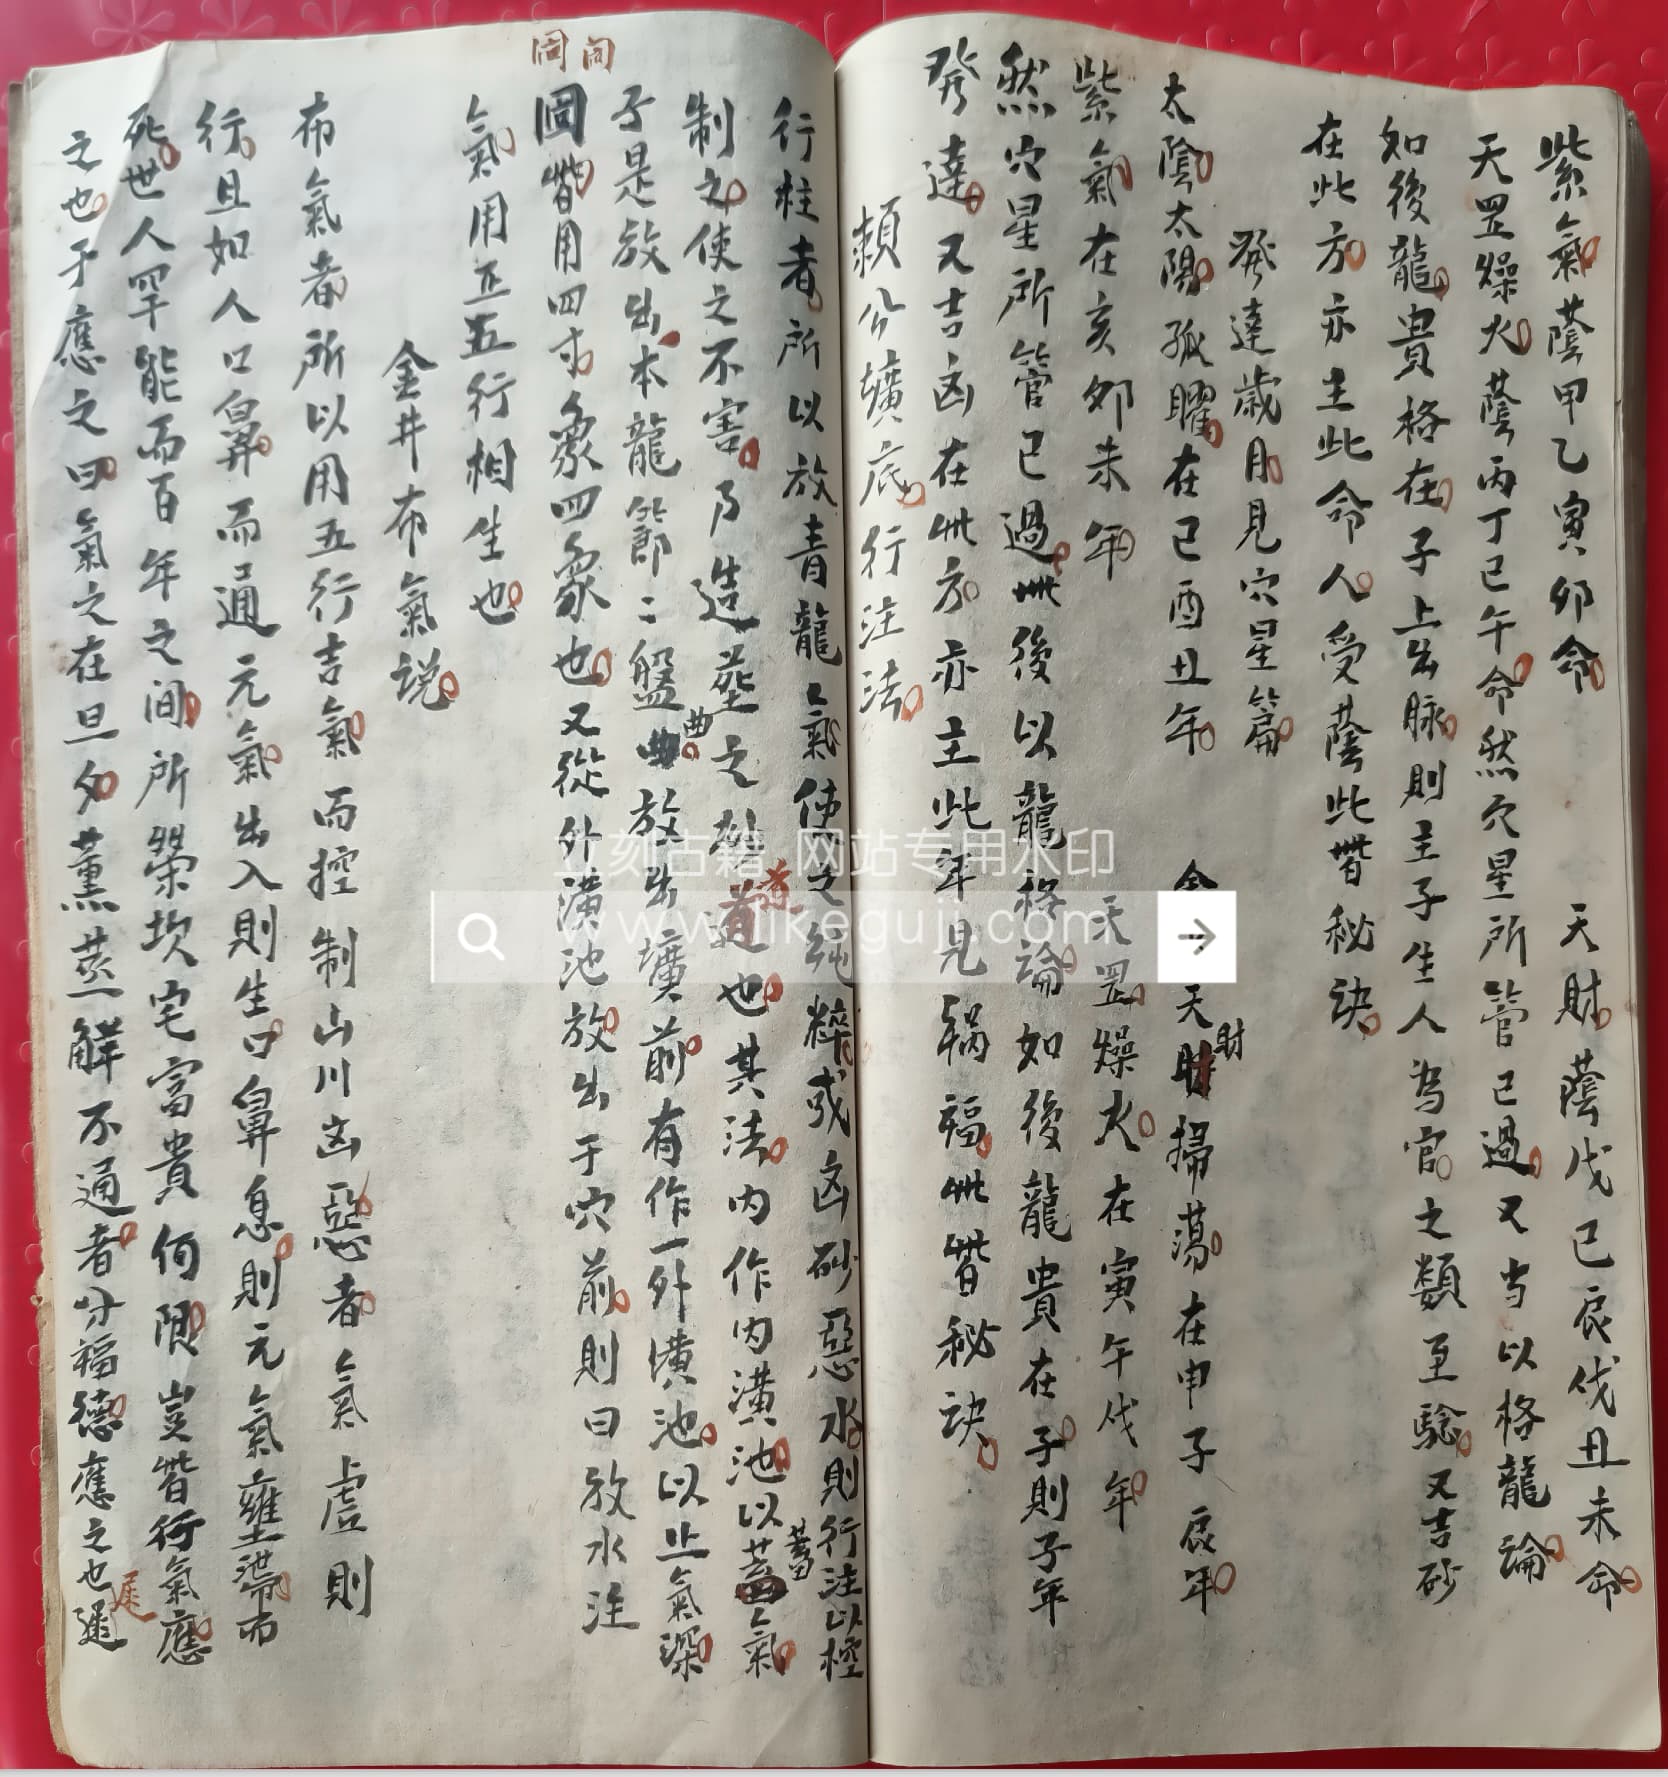 紫氣蔭甲乙寅卯命 天財蔭戊己辰戌丑未命
天罡燥火蔭丙丁巳午命然穴星所管已過又当以格龍論
如後龍貴格在子上出脉則主子生人為官之類至騐又吉砂
在此方亦主此命人受蔭此皆秘訣
發達歲月見穴星篇
太陰太陽孤曜在巳酉丑年 天財掃蕩在申子辰年
財
紫氣在亥卯未年 天罡燥火在寅午戌年
然穴星所管已過此後以龍格論如後龍貴在子則子年
發達又吉凶在此方亦主此年見禍福此皆秘訣
賴公壙底行注法
行柱者所以放青龍之氣使之純粹或凶砂惡水則行注以控
制之使之不害乃造塋之道也其法内作内潢池以蓄氣
蓄
于是放出本龍節二盤曲放出壙前有作一外潢池以止氣深
曲
圖皆用四寸象四象也又從外潢池放出于穴前則曰放水注
氣用正五行相生也
金井布氣説
布氣者所以用五行吉氣而控制山川凶惡者氣虛則
行且如人口鼻而通元氣出入則生口鼻息則元氣壅滯而
死世人罕能而百年之间所榮坎宅富貴何限豈皆行氣應
之也于應之曰氣之在旦夕薰蒸一觧不通者分福德應之也遲
立刻古籍 网站专用水印
www.likeguji.com